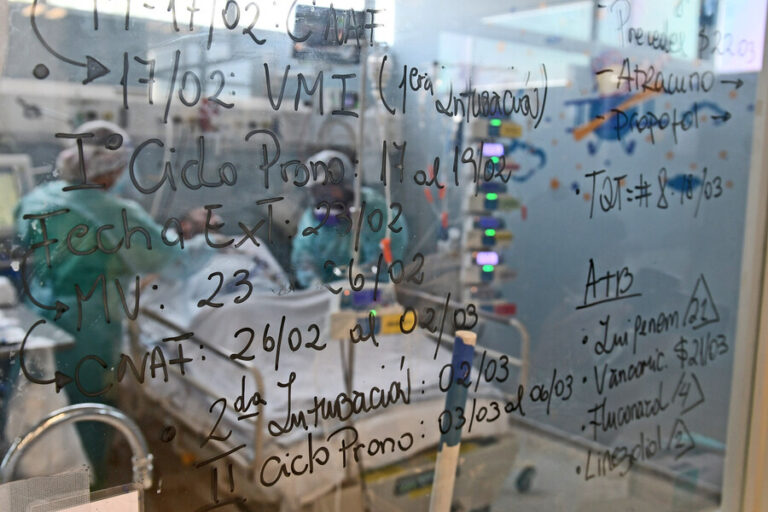 11-17/02: CNAF
17/02: VMI (1era Intubación)
I° Ciclo Prono: 17 al 19/02
Fecha Ext: 23/02
MV: 23 26/02
CNAF: 26/02 al 02/03
2da Intubación: 02/03
II Ciclo Prono: 03/03 al 06/03
Precedex $22.03
- Atracurio →
- Propofol →
TQT=# 8. 18/03
ATB
Imipenem 21
Vancomic. $21/03
Fluconazol 4
Linezolid 2